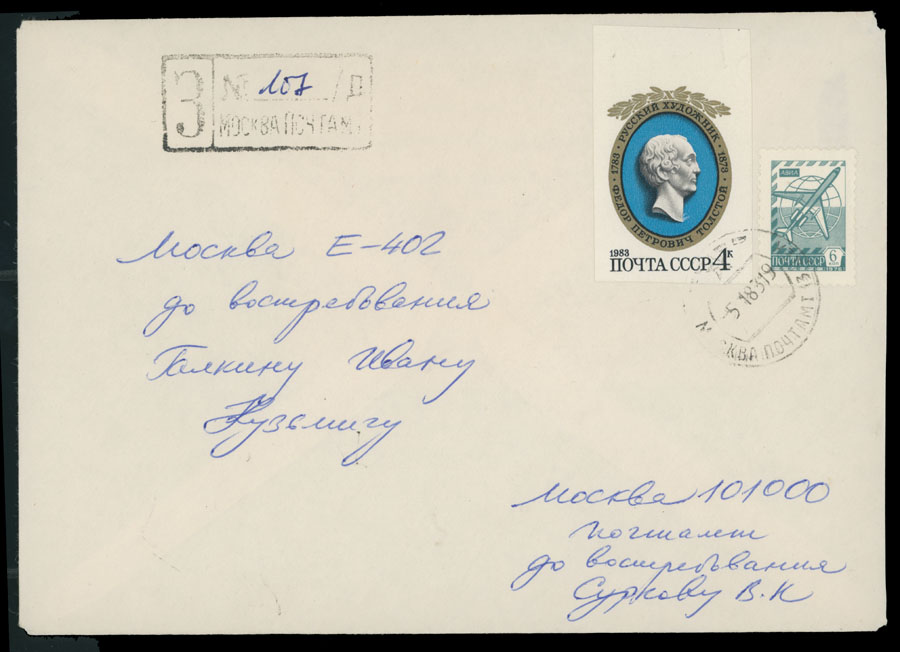 З № 107 / П
МОСКВА ПОЧТАМТ
РУССКИЙ ХУДОЖНИК · 1873 · ФЕДОР ПЕТРОВИЧ ТОЛСТОЙ · 1783
1983
ПОЧТА СССР 4к
АВИА
ПОЧТА СССР 6
МОСКВА ПОЧТАМТ
-5 1 83 19
Москва Е-402
до востребования
Галкину Ивану
Кузьмичу
Москва 101000
почтамт
до востребования
Суркову В.К